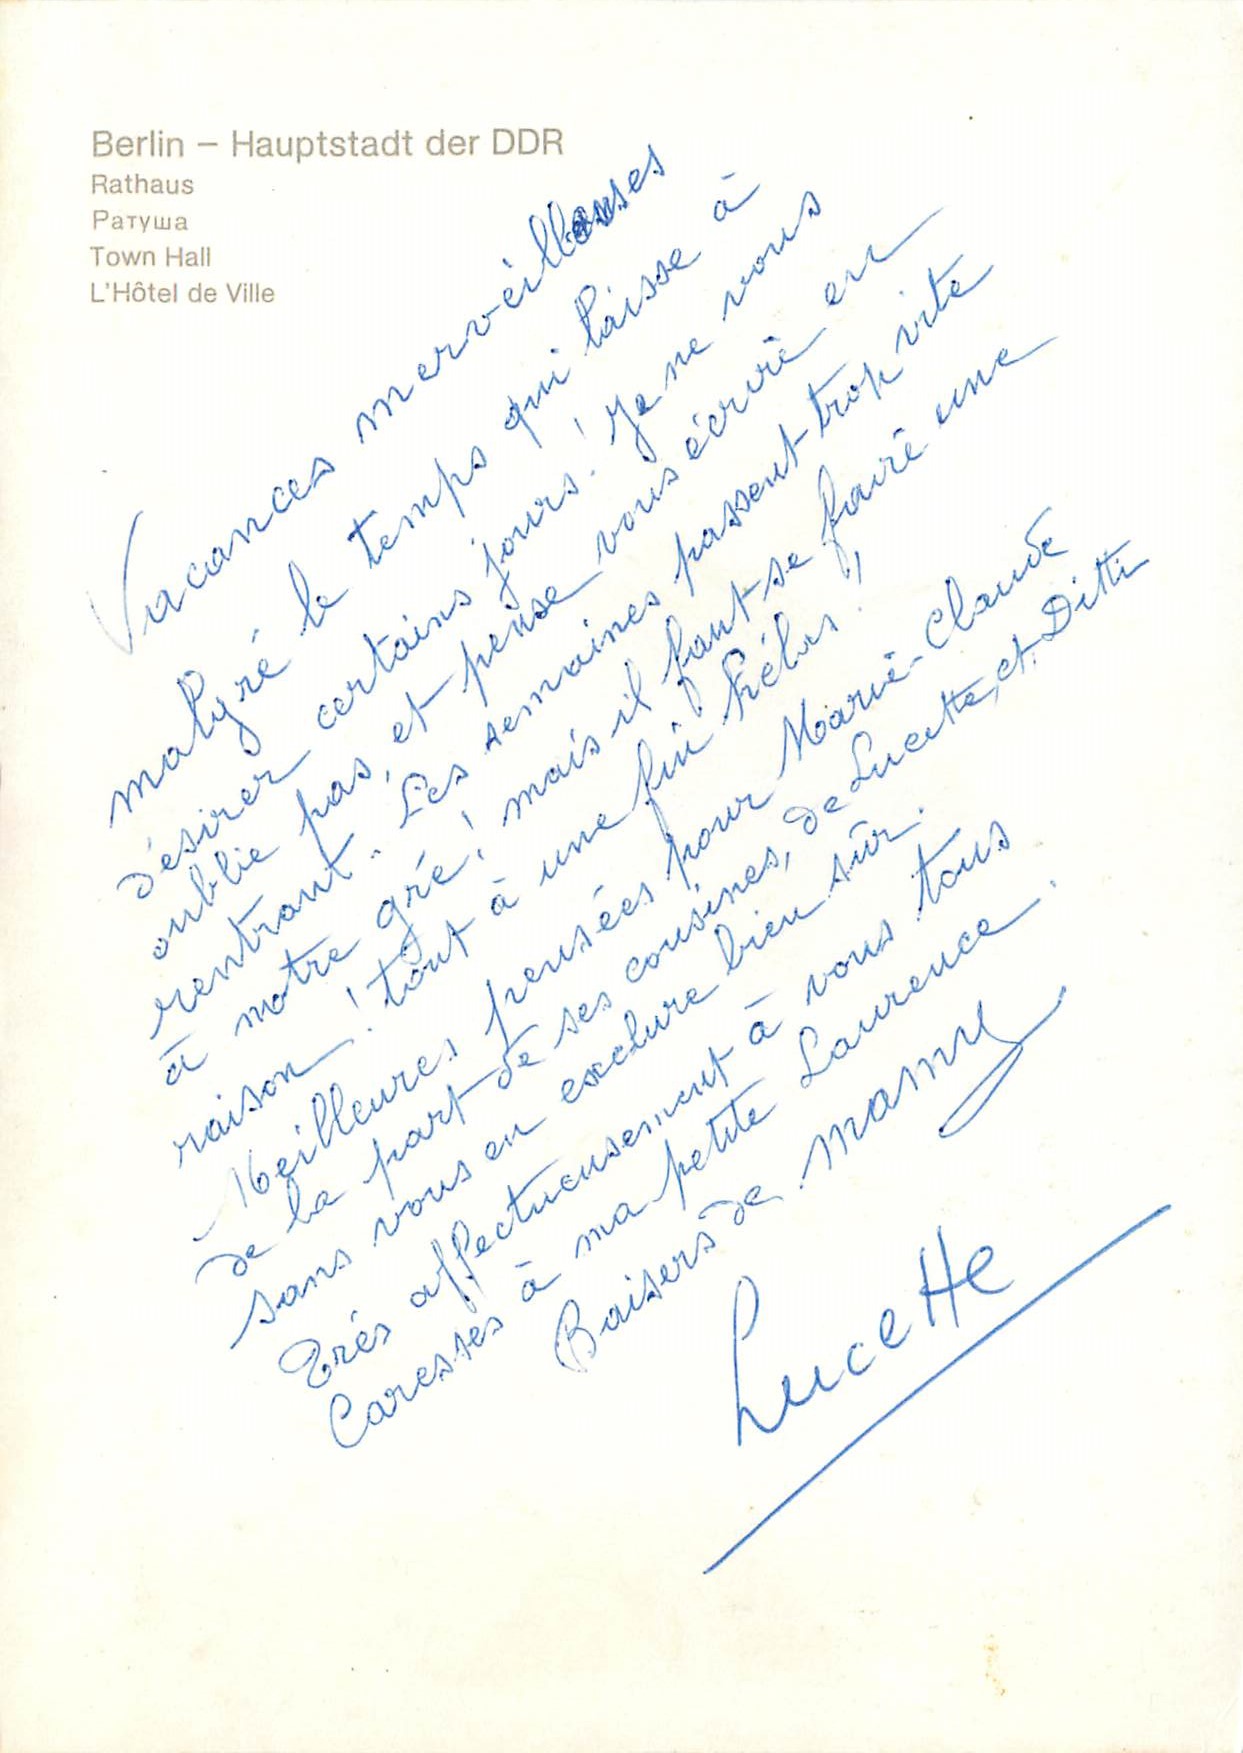 Berlin – Hauptstadt der DDR
Rathaus
Ратуша
Town Hall
L'Hôtel de Ville
Vacances merveilleuses
malgré le temps qui laisse à
désirer certains jours! Je ne vous
oublie pas, et pense vous écrire en
rentrant. Les semaines passent trop vite
à notre gré! mais il faut se faire une
raison! tout à une fin hélas!
Meilleures pensées pour Marie-Claude
de la part de ses cousines, de Lucette, et Ditti
sans vous en exclure bien sûr.
Très affectueusement à vous tous
Caresses à ma petite Laurence.
Baisers de mamy
Lucette